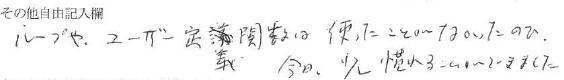 その他自由記入欄
ループや、ユーザー定義関数は使ったことがなかったので、
今日、少し慣れることができました